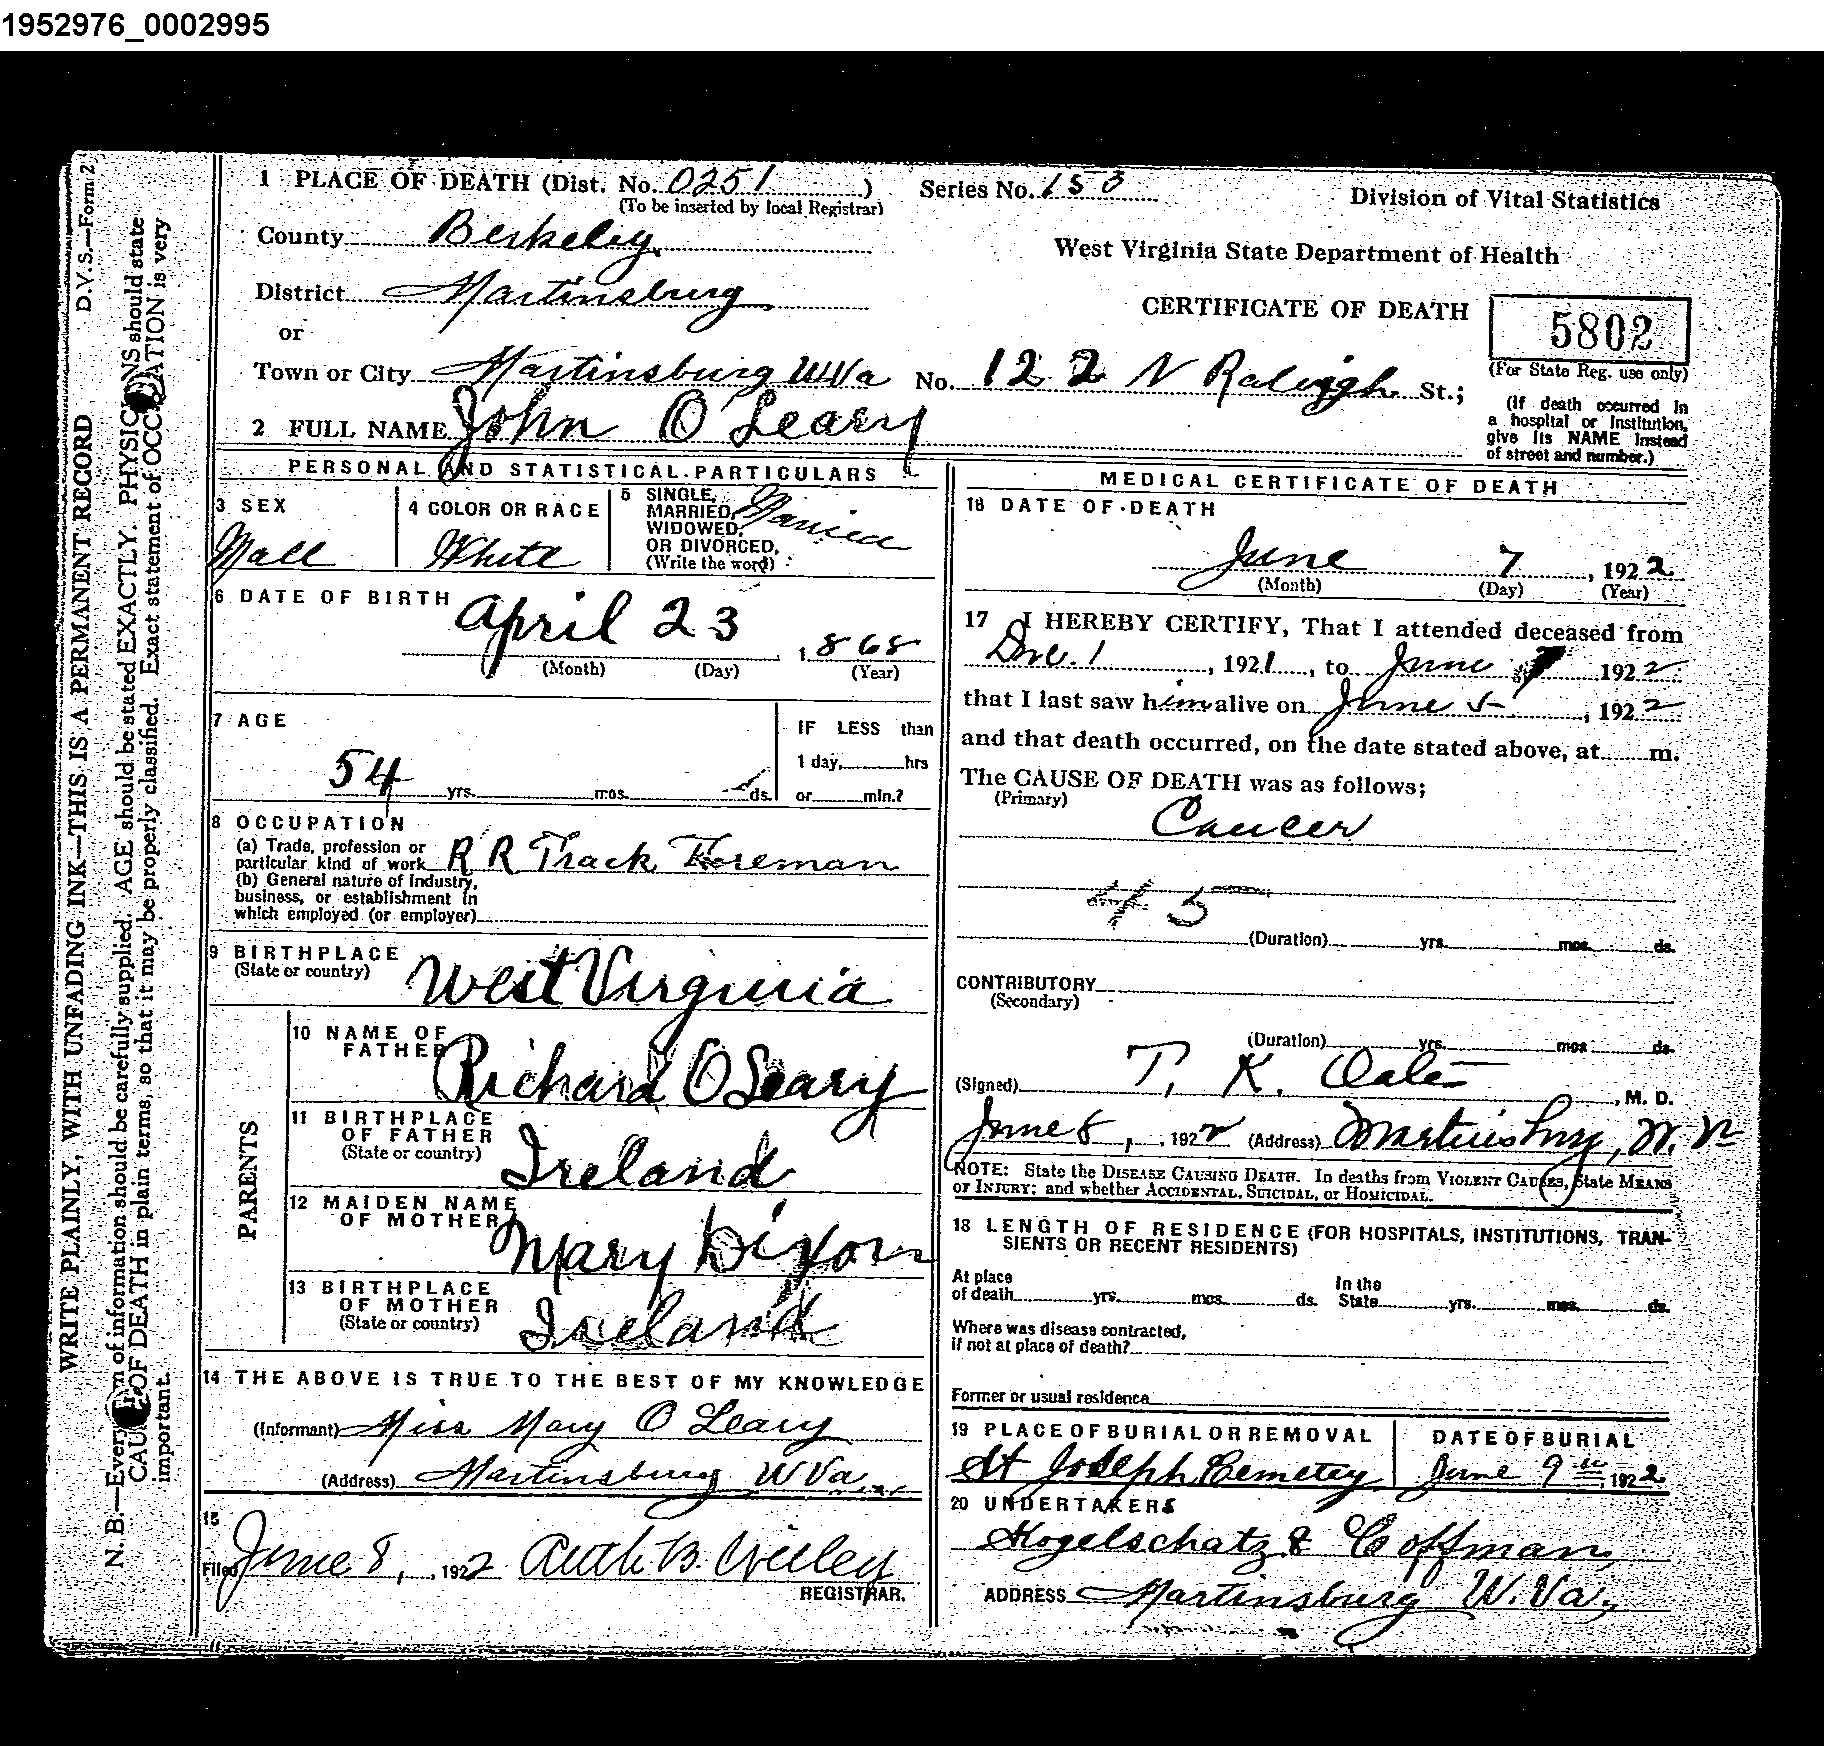 1952976_0002995
1 PLACE OF DEATH (Dist. No. 0251 )
(To be inserted by local Registrar)
Series No. 153
Division of Vital Statistics
County Berkeley
West Virginia State Department of Health
District Martinsburg
or
CERTIFICATE OF DEATH
5802
(For State Reg. use only)
Town or City Martinsburg W Va No. 122 N Raleigh St.;
(If death occurred in
a hospital or Institution,
give its NAME instead
of street and number.)
2 FULL NAME John O'Leary
PERSONAL AND STATISTICAL PARTICULARS
3 SEX
Mall
4 COLOR OR RACE
White
5 SINGLE,
MARRIED,
WIDOWED,
OR DIVORCED,
(Write the word)
6 DATE OF BIRTH
April 23, 1868
(Month) (Day) (Year)
7 AGE
54 yrs. mos. ds.
IF LESS than
1 day, hrs
or min.?
8 OCCUPATION
(a) Trade, profession or
particular kind of work R R Track Foreman
(b) General nature of Industry,
business, or establishment in
which employed (or employer)
9 BIRTHPLACE
(State or country)
West Virginia
PARENTS
10 NAME OF
FATHER
Richard O Leary
11 BIRTHPLACE
OF FATHER
(State or country)
Ireland
12 MAIDEN NAME
OF MOTHER
Mary Dixon
13 BIRTHPLACE
OF MOTHER
(State or country)
Ireland
14 THE ABOVE IS TRUE TO THE BEST OF MY KNOWLEDGE
(Informant) Miss Mary O Leary
(Address) Martinsburg W Va
15
Filed June 8, 1922
REGISTRAR.
MEDICAL CERTIFICATE OF DEATH
16 DATE OF DEATH
June 7, 1922
(Month) (Day) (Year)
17 I HEREBY CERTIFY, That I attended deceased from
Dec. 1, 1921, to June 7 1922
that I last saw him alive on June 5, 1922
and that death occurred, on the date stated above, at m.
The CAUSE OF DEATH was as follows;
(Primary)
Cancer
45
(Duration) yrs. mos. ds.
CONTRIBUTORY
(Secondary)
(Duration) yrs. mos. ds.
(Signed) T. K. Oates, M. D.
June 8, 1922 (Address) Martinsburg, W. Va
NOTE: State the DISEASE CAUSING DEATH. In deaths from VIOLENT CAUSES, State MEANS
OF INJURY; and whether ACCIDENTAL, SUICIDAL, or HOMICIDAL.
18 LENGTH OF RESIDENCE (FOR HOSPITALS, INSTITUTIONS, TRAN-
SIENTS OR RECENT RESIDENTS)
At place
of death yrs. mos. ds.
In the
State yrs. mos. ds.
Where was disease contracted,
if not at place of death?
Former or usual residence
19 PLACE OF BURIAL OR REMOVAL
St Joseph Cemetey
DATE OF BURIAL
June 9th, 1922
20 UNDERTAKERS
Hogelschatz & Coffman
ADDRESS Martinsburg W. Va.
D.V.S.—Form 2
WRITE PLAINLY, WITH UNFADING INK—THIS IS A PERMANENT RECORD
N. B.—Every item of information should be carefully supplied. AGE should be stated EXACTLY. PHYSICIANS should state
CAUSE OF DEATH in plain terms, so that it may be properly classified. Exact statement of OCCUPATION is very
important.